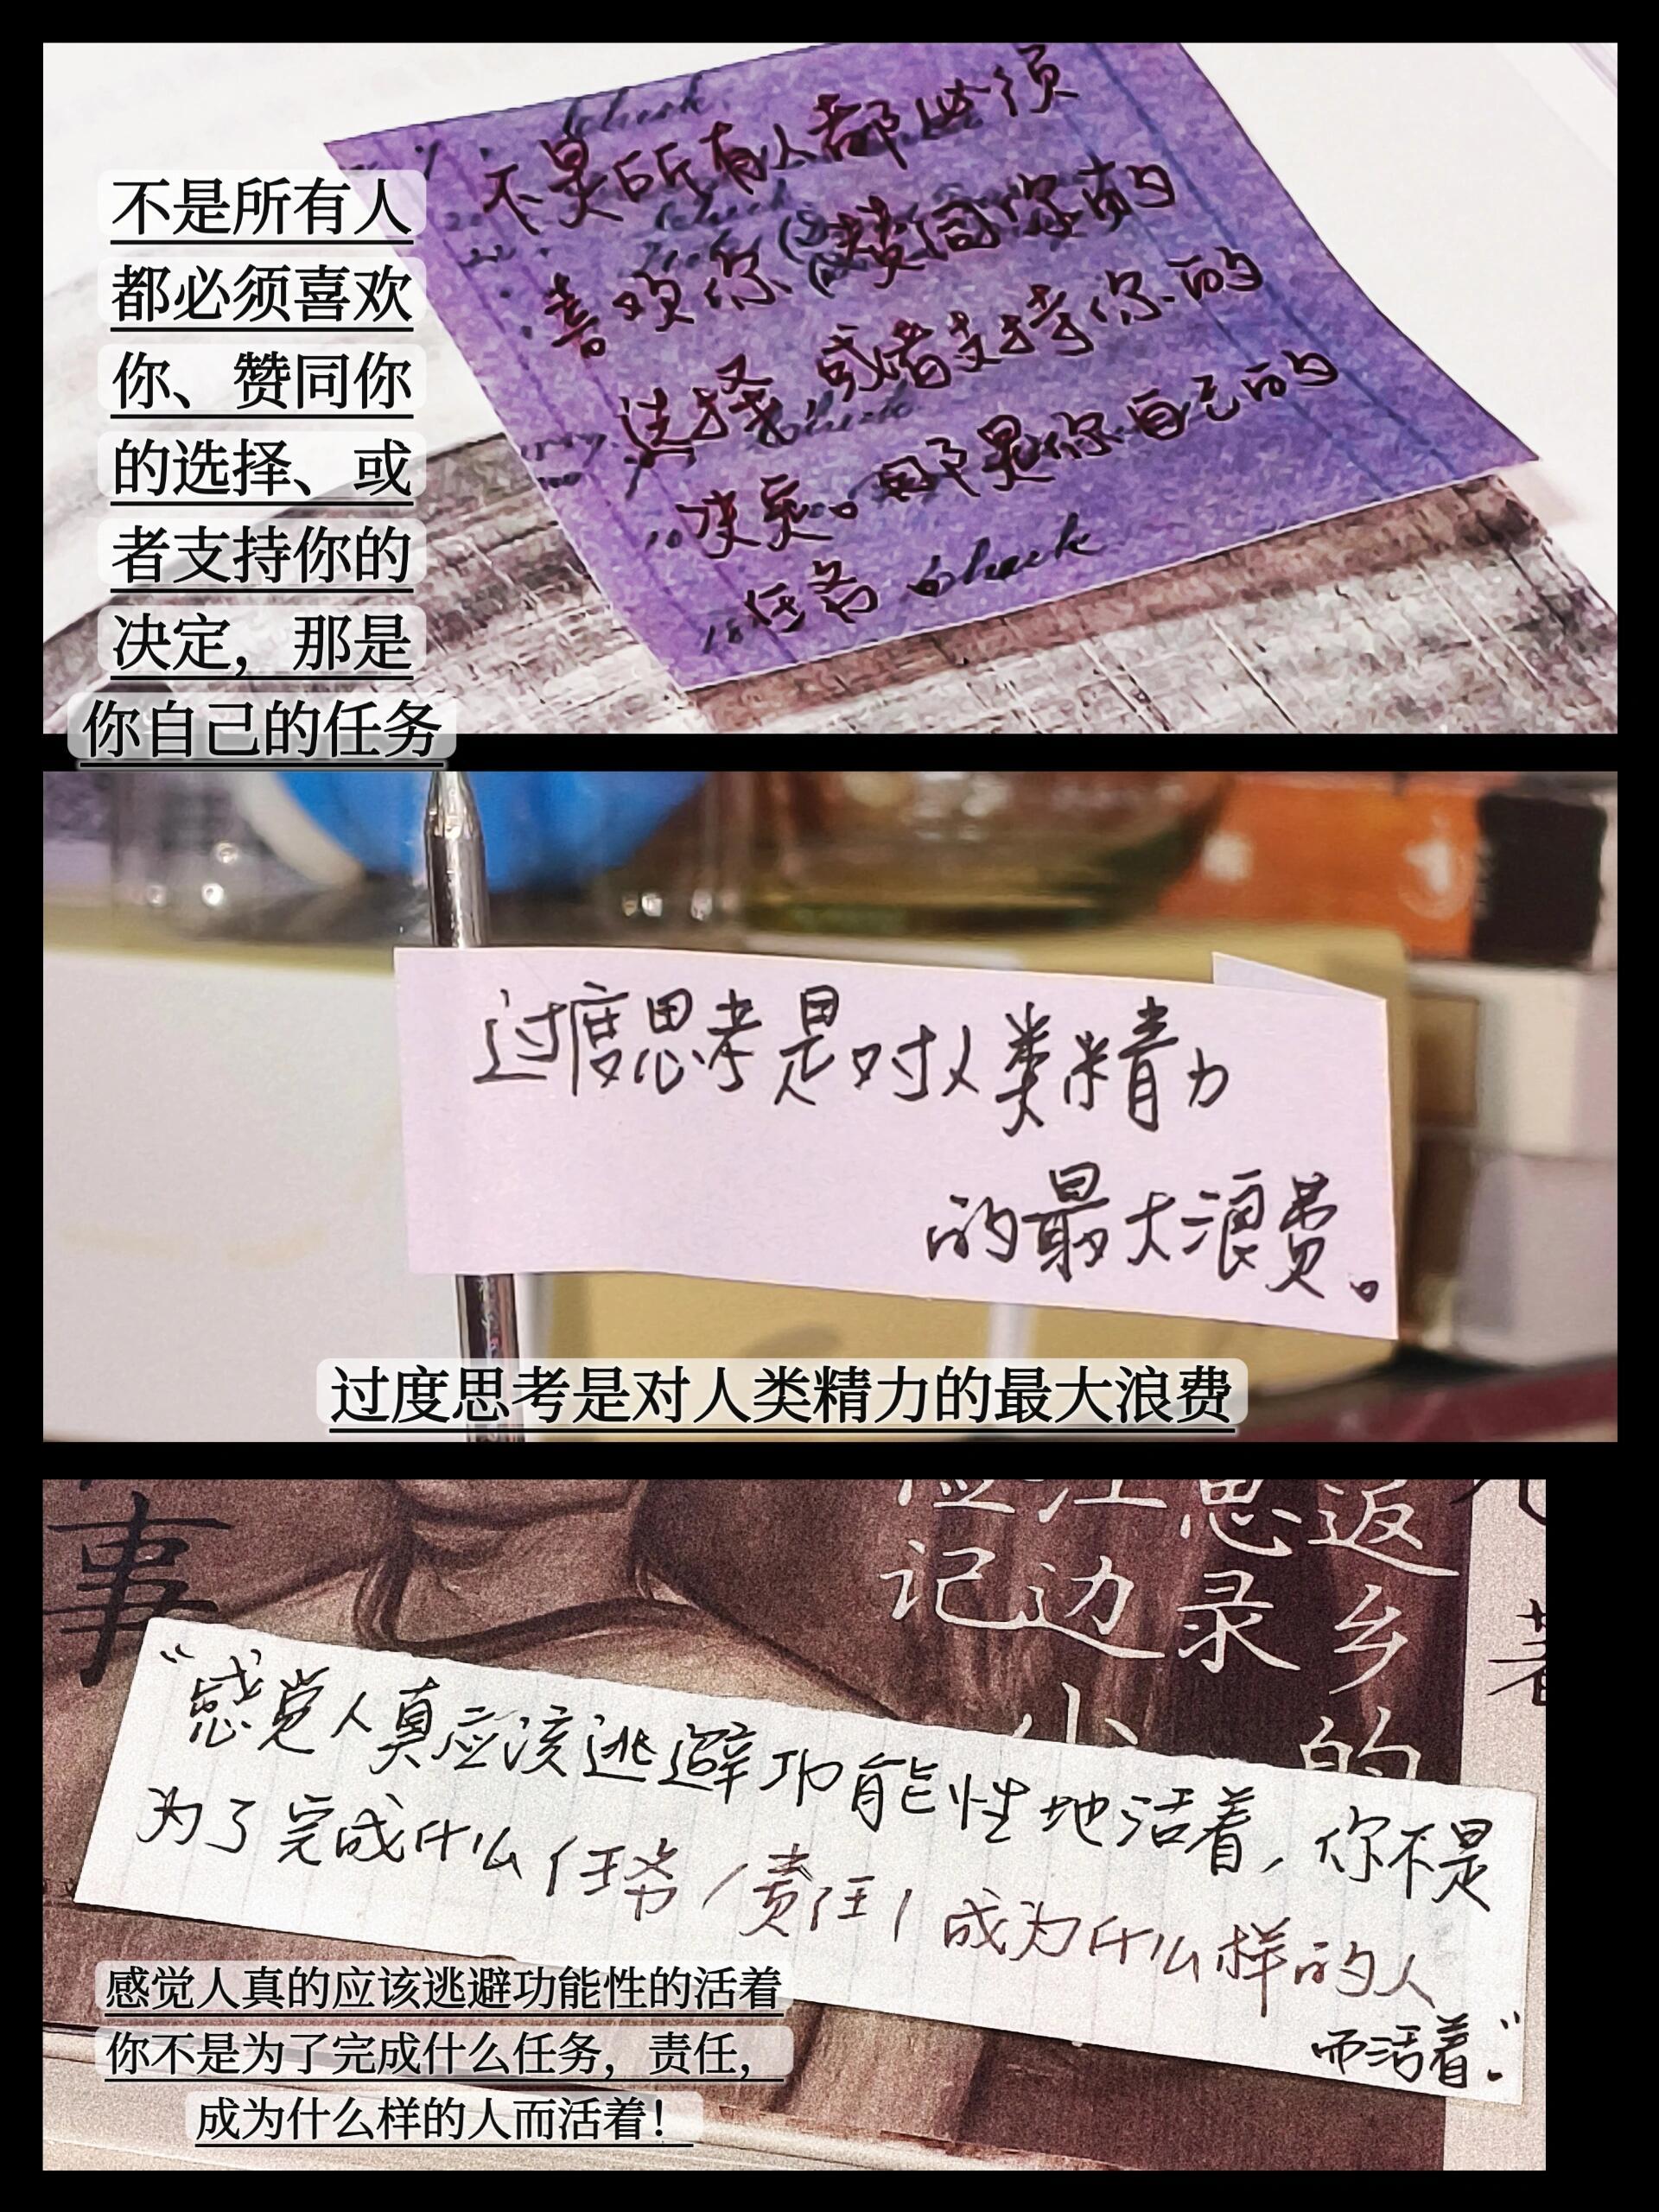 不是所有人都必须
喜欢你、赞同你的
选择，或者支持你的
决定。那是你自己的
任务
check
不是所有人
都必须喜欢
你、赞同你
的选择、或
者支持你的
决定，那是
你自己的任务
过度思考是对人类精力
的最大浪费。
过度思考是对人类精力的最大浪费
事
返乡的
思录
边小
记
著
“感觉人真应该逃避功能性地活着，你不是
为了完成什么任务/责任/成为什么样的人
而活着.”
感觉人真的应该逃避功能性的活着
你不是为了完成什么任务，责任，
成为什么样的人而活着！